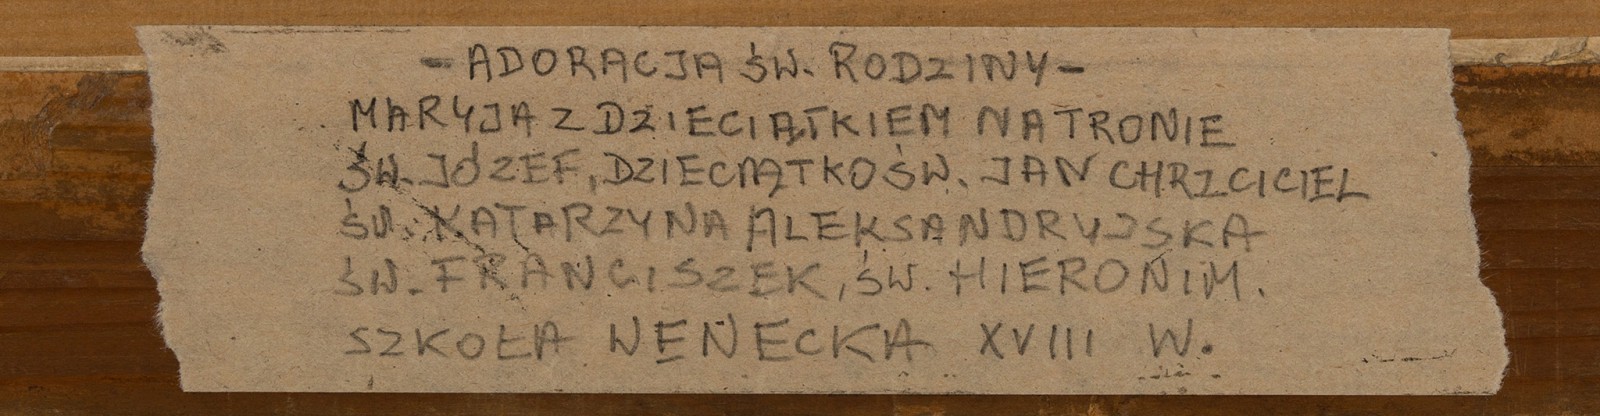 - ADORACJA ŚW. RODZINY -
MARYJA Z DZIECIĄTKIEM NA TRONIE
ŚW. JÓZEF, DZIECIĄTKO ŚW. JAN CHRZCICIEL
ŚW. KATARZYNA ALEKSANDRYJSKA
ŚW. FRANCISZEK, ŚW. HIERONIM.
SZKOŁA WENECKA XVIII W.